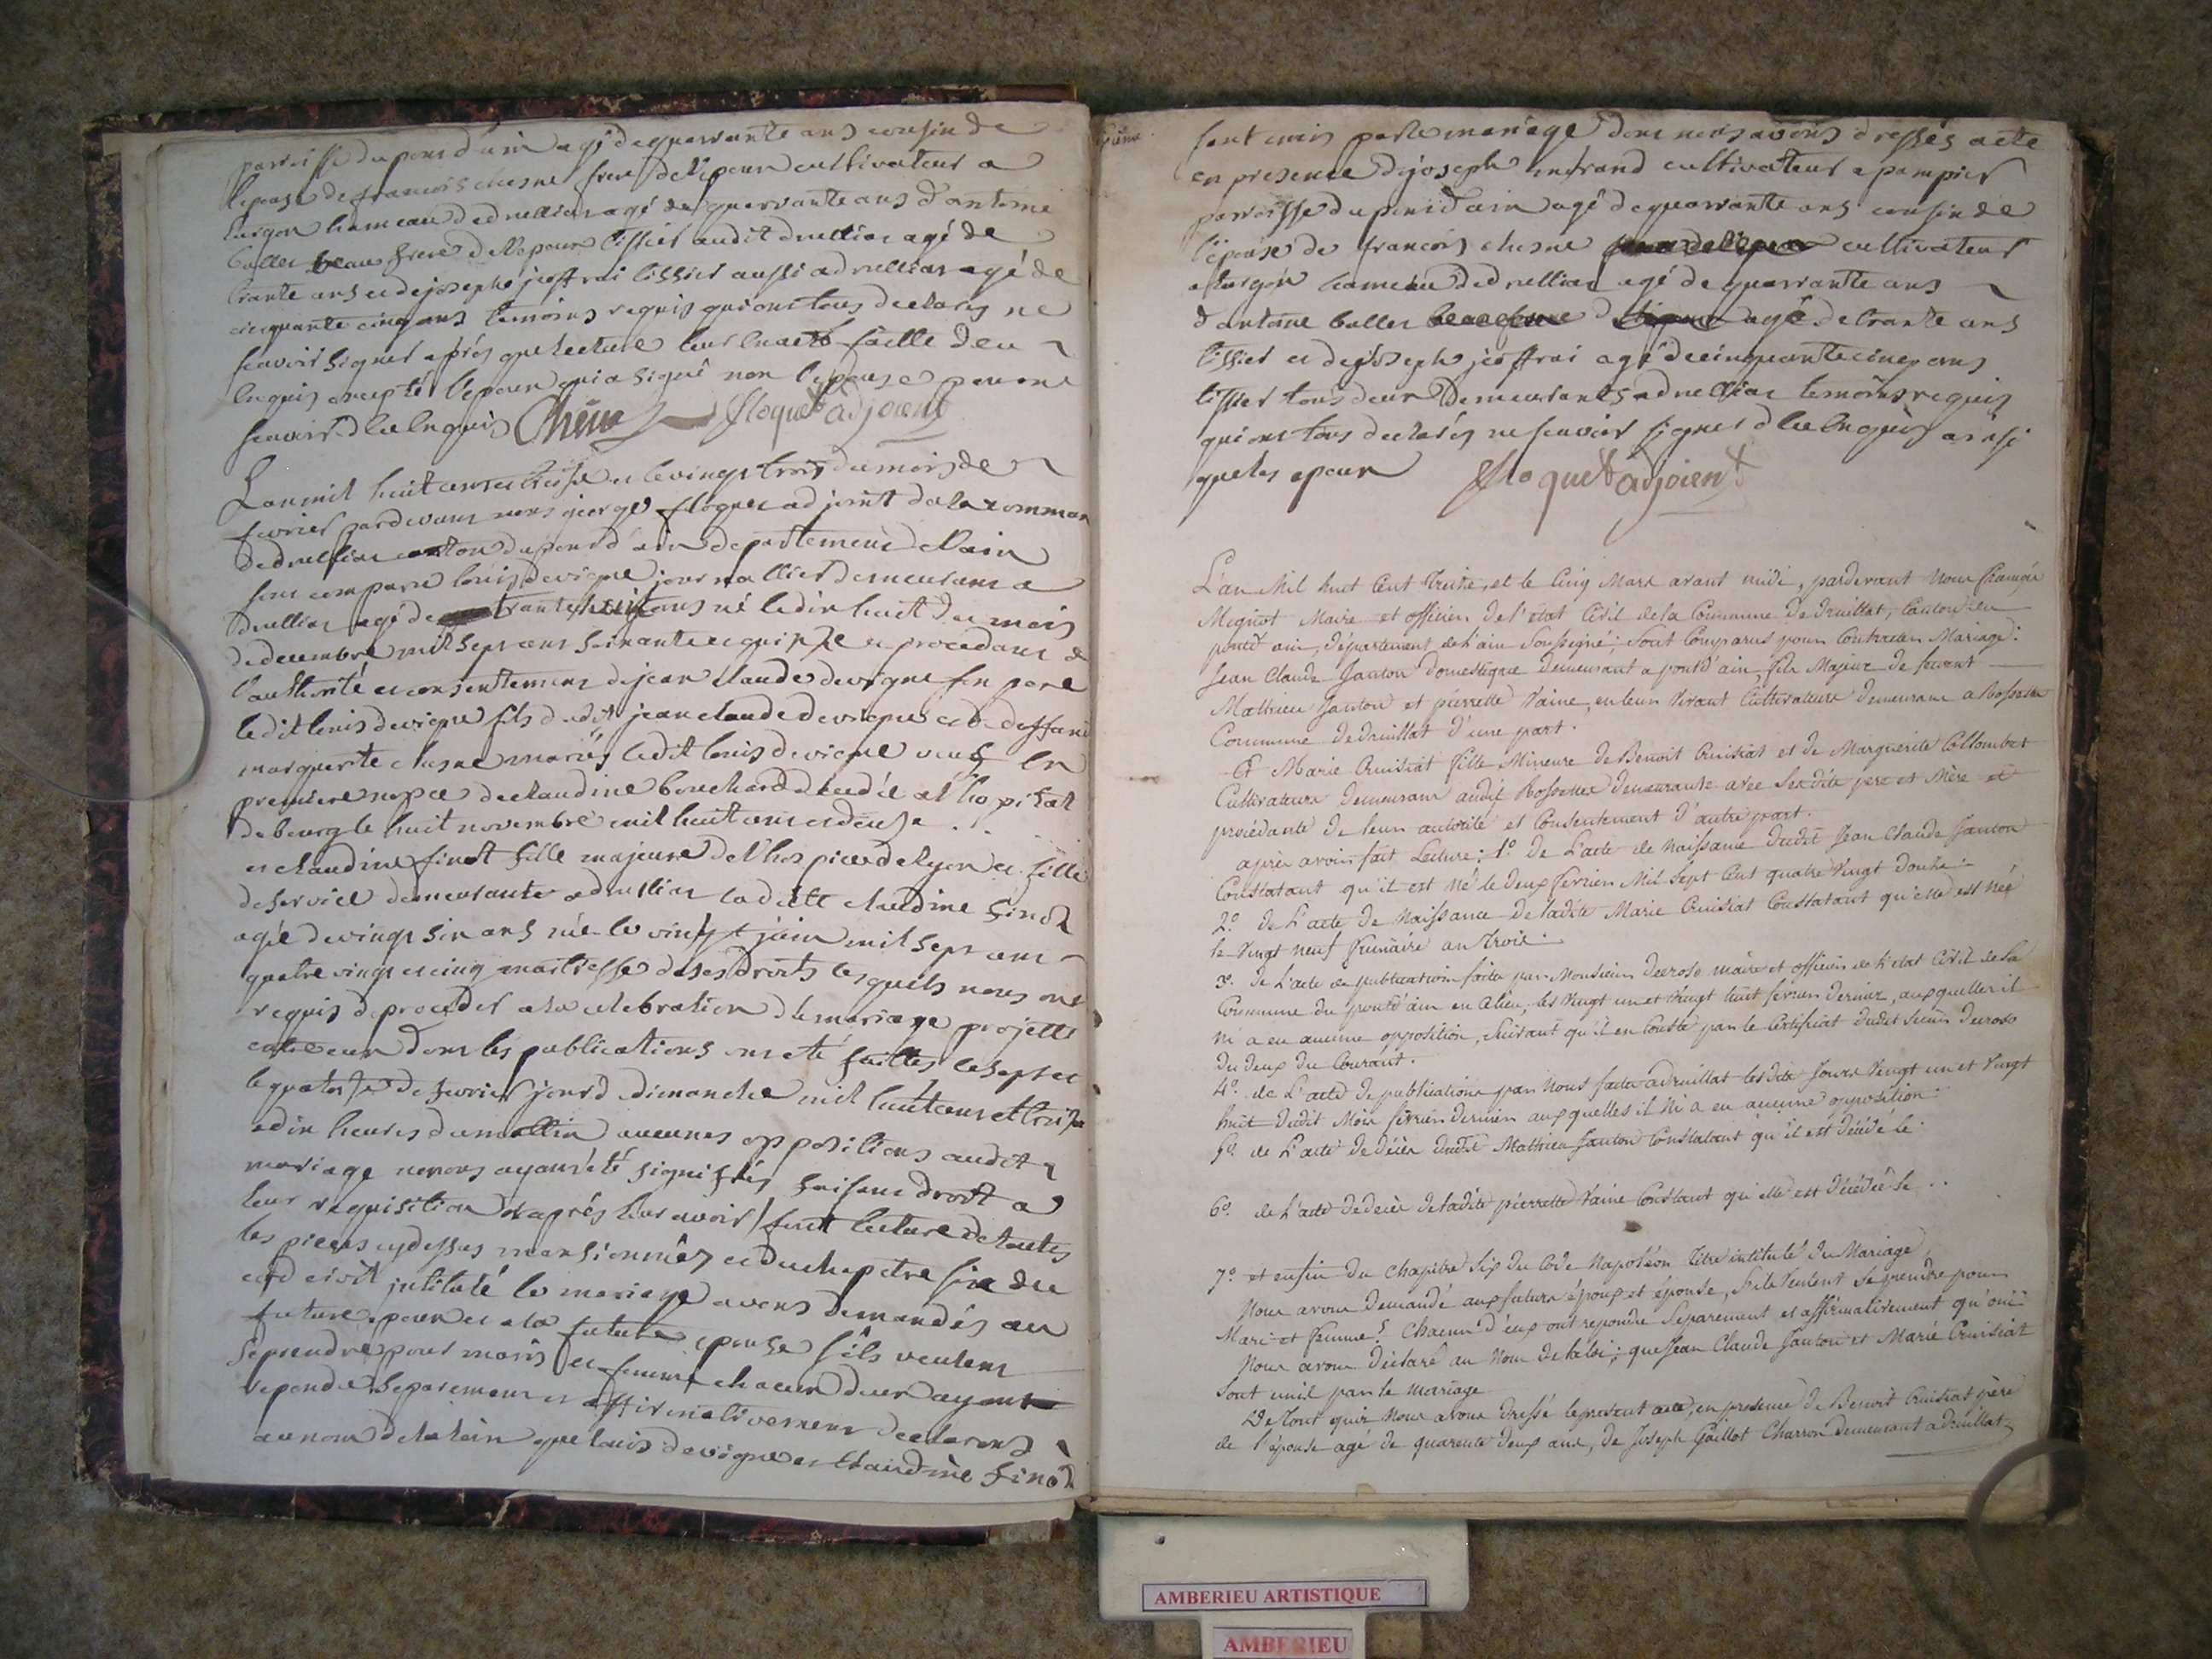 parroisse du pons d'ain agé de quarrante ans cousin de
l'epouse de francois chesne frere de l'epoux cultivateur a
turgon hameau de druilliat agé de quarrante ans d'antoine
bullet beau frere de l'epoux tissier audit druilliat agé de
trante ans et de joseph jeoffrai tissier aussi a druilliat agé de
cinquante cinq ans temoins requis qui ont tous declarés ne
scavoir signer après que lecture leur en a etté faitte deu
enquis excepté l'epoux qui a signé non l'epouse pour ne
scavoir de ce enquis Chêne floquet adjoient
L'an mil huit cent treise et le vingt trois du mois de
fevrier pardevant nous george floquet adjoint de la comman
de druilliat canton du pond d'ain departement de l'ain
sont comparu louis devigne journallier demeurant a
druilliat agé de trante huit ans né le dix huit du mois
de decembre mil sept cent soixante et quinze et procedant de
l'authorité et consentement de jean claude devigne son pere
ledit louis devigne fils dudit jean claude devigne et de deffunte
marguerite chesne mariés ledit louis devigne veuf en
premiere nopce de claudine bouchard decedée a l'hopital
de bourg le huit novembre mil huit cent et douse
et claudine finot fille majeure de l'hospice de lyon et fille
de service demeurante a druilliat ladite claudine finot
agée de vingt six ans née le vingt juin mil sept cent
quatre vingt et cinq maitresse de ses droits lesquels nous ont
requis de proceder a la celebration de mariage projetté
entre eux dont les publications ont eté faittes le sept et
le quatorze de fevrier jour de dimanche mil huit cent et treise
a dix heures du mattin aucunes oppositions audit
mariage ne nous ayant été signifiés faisant droit a
leur requisition et après leur avoir fait lecture de toutes
les pieces cy dessus mansionnées et du chapitre six du
cod civil intitulé le mariage avons demandés au
future epoux et a la future epouse s'ils veulent
se prendre pour maris et femme chacun deux ayant
repondu separement et affirmativement declarons
au nom de la loix que louis devigne et claudine finot
sont unis par le mariage dont nous avons dressés acte
en presence de joseph cultivateur a pampier
parroisse du pons d'ain agé de quarrante ans cousin de
l'epouse de francois chesne frere de l'epoux cultivateur
a turgon hameau de druilliat agé de quarrante ans
d'antoine bullet beau frere d agé de trante ans
tissier et de joseph jeoffrai agé de cinquante cinq ans
tissier tous deux demeurants a druilliat temoins requis
qui ont tous declarés ne scavoir signer de ce enquis ainsi
que les epoux floquet adjoient
L'an Mil huit Cent Treize, et le Cinq Mars avant midi, pardevant Nous François
Mignot Maire et officier de l'etat Civil de la Commune de Druillat, Canton du
pont d'ain, département de L'ain Soussigné; Sont Comparus pour Contracter Mariage:
Jean Claude Janton Domestique demeurant a pont d'ain, fils Majeur de feuent
Mathieu Janton et pierrette Vaine, en leur vivant Cultivateurs demeurans a Rossettes
Commune de Druillat d'une part.
Et Marie Cruisiat fille Mineure de Benoit Cruisiat et de Marguerite Collombet
Cultivateurs demeurans audit Rossettes demeurante avec Sesdits pere et Mère et
procédante de leur autorité et Consentement d'autre part.
après avoir fait Lecture: 1.º De L'acte de Naissance dudit Jean Claude Janton
Constatant qu'il est Né le deux fevrier Mil Sept Cent quatre Vingt Douze.
2.º de L'acte de Naissance de ladite Marie Cruisiat Constatant qu'elle est Née
le Vingt neuf frimaire an Trois.
3º. de L'acte de publication faite par Monsieur Decroso maire et officier de L'etat Civil de la
Commune du pont d'ain en Date, les Vingt un et Vingt huit fevrier Dernier, auxquelles il
ni a eu aucune opposition, Suivant qu'il en Conste par le Certificat dudit Sieur Decroso
du deux du Courant.
4º. de L'acte de publications par Nous faites a druillat lesdits Jours Vingt un et Vingt
huit Dudit Mois fevrier Dernier auxquelles il Ni a eu aucune opposition.
5º. de L'acte de décès dudit Mathieu Janton Constatant qu'il est décédé le.
6º. de L'acte de decès de ladite pierrette Vaine Constant qu'elle est décédée le ..
7.º et enfin du Chapitre Six du Code Napoléon titre intitulé du Mariage,
Nous avons Demandé aux futurs époux et épouse, S'ils Veulent Se prendre pour
Mari et femme? Chacun d'eux ont repondu Separement et affirmativement qu'oui
Nous avons Déclaré au Nom de la loi; que Jean Claude Janton et Marie Cruisiat
Sont unis par le mariage
De Tout quoi Nous avons Dressé le present acte, en presence de Benoit Cruisiat père
de l'épouse agé de quarente deux ans, de Joseph Gaillot Charron demeurant a druillat
AMBERIEU ARTISTIQUE
AMBERIEU